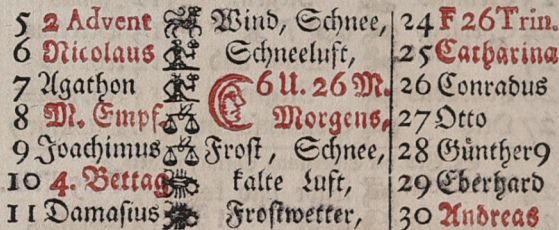 5 2 Advent Wind, Schnee, 24 F 26 Trin.
6 Nicolaus Schneeluft, 25 Catharina
7 Agathon 6 U. 26 M. 26 Conradus
8 M. Empf. Morgens, 27 Otto
9 Joachimus Frost, Schnee, 28 Günther9
10 4. Bettag kalte Luft, 29 Eberhard
11 Damasius Frostwetter, 30 Andreas